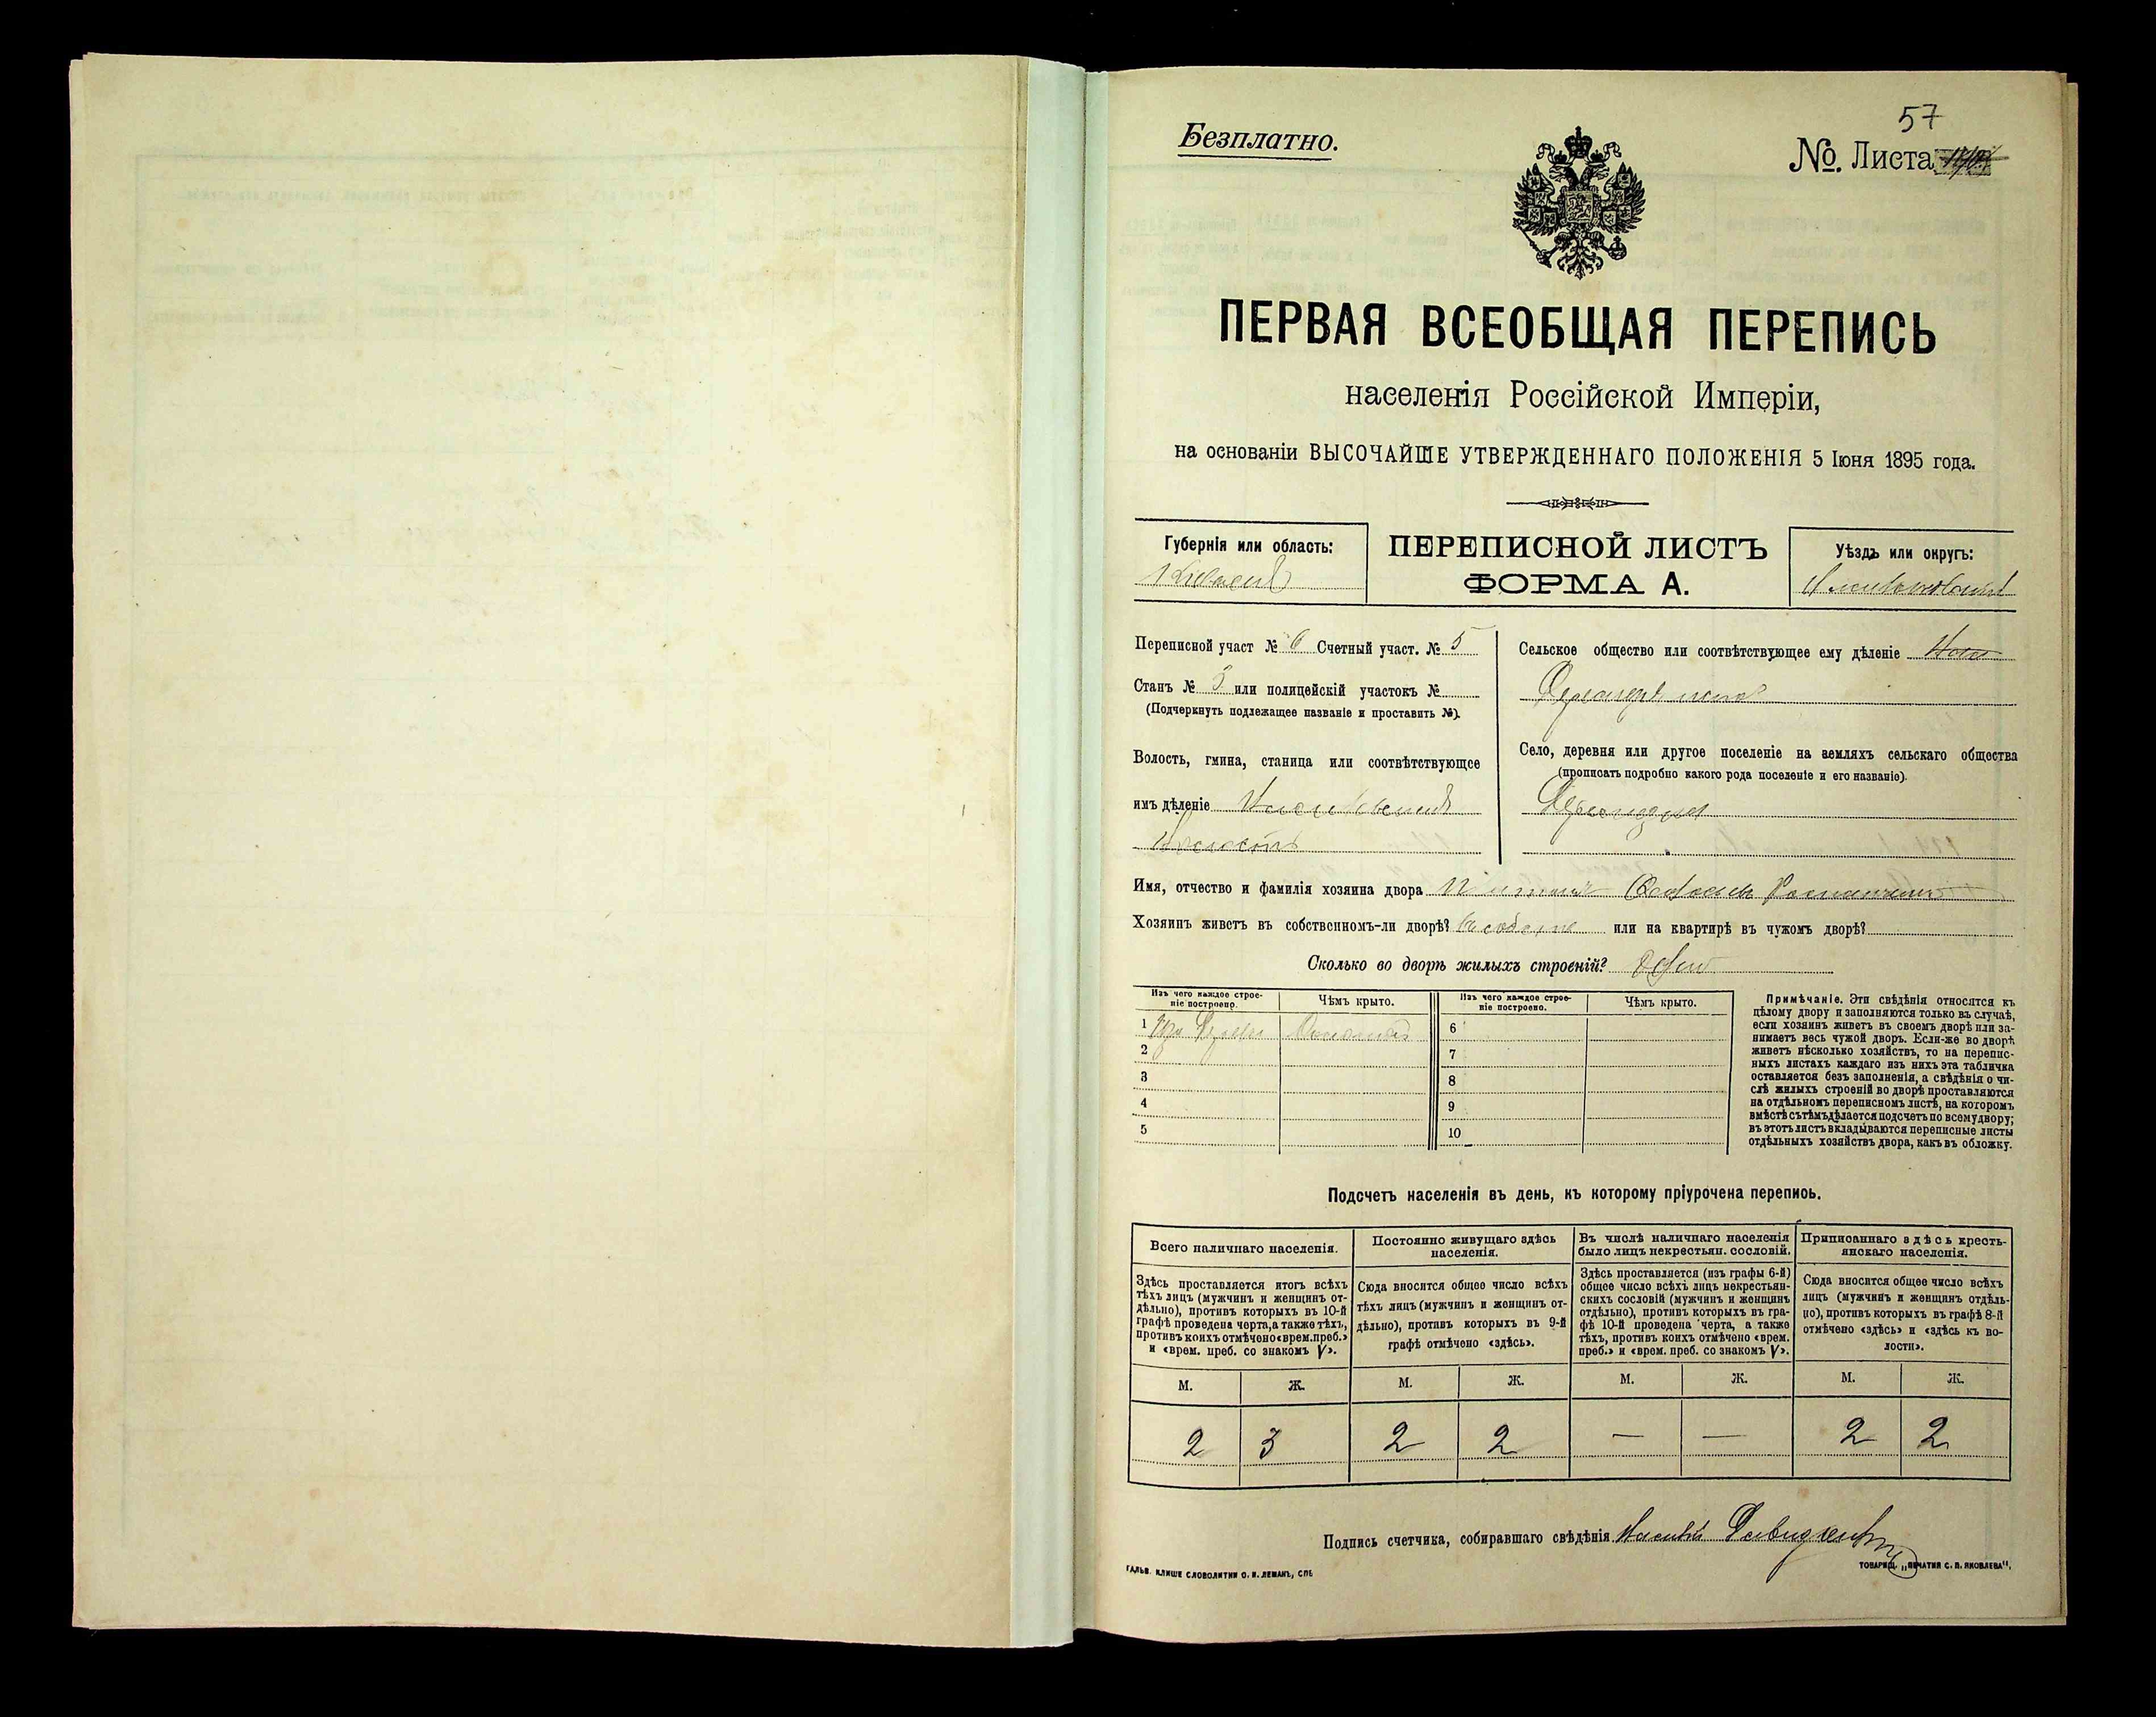 57
Безплатно.
№. Листа
ПЕРВАЯ ВСЕОБЩАЯ ПЕРЕПИСЬ
населенія Россійской Имперіи,
на основаніи ВЫСОЧАЙШЕ УТВЕРЖДЕННАГО ПОЛОЖЕНІЯ 5 Іюня 1895 года.
Губернія или область:
ПЕРЕПИСНОЙ ЛИСТЪ
ФОРМА А.
Уѣздъ или округъ:
Переписной участ № 6 Счетный участ. № 5
Станъ № 3 или полицейскій участокъ №
(Подчеркнуть подлежащее названіе и проставить №).
Волость, гмина, станица или соотвѣтствующее
имъ дѣленіе
Волость
Сельское общество или соотвѣтствующее ему дѣленіе
Село, деревня или другое поселеніе на земляхъ сельскаго общества
(прописать подробно какого рода поселеніе и его названіе).
Имя, отчество и фамилія хозяина двора
Хозяинъ живетъ въ собственномъ-ли дворѣ? или на квартирѣ въ чужомъ дворѣ?
Сколько во дворѣ жилыхъ строеній?
Изъ чего каждое строе-
ніе построено.
Чѣмъ крыто.
Изъ чего каждое строе-
ніе построено.
Чѣмъ крыто.
1 Изъ дерева
2
3
4
5
6
7
8
9
10
Примѣчаніе. Эти свѣдѣнія относятся къ
цѣлому двору и заполняются только въ случаѣ,
если хозяинъ живетъ въ своемъ дворѣ или за-
нимаетъ весь чужой дворъ. Если-же во дворѣ
живетъ нѣсколько хозяйствъ, то на перепис-
ныхъ листахъ каждаго изъ нихъ эта табличка
оставляется безъ заполненія, а свѣдѣнія о чи-
слѣ жилыхъ строеній во дворѣ проставляются
на отдѣльномъ переписномъ листѣ, на которомъ
вмѣстѣ съ тѣмъ дѣлается подсчетъ по всему двору;
въ этотъ листъ вкладываются переписные листы
отдѣльныхъ хозяйствъ двора, какъ въ обложку.
Подсчетъ населенія въ день, къ которому пріурочена перепись.
Всего наличнаго населенія.
Здѣсь проставляется итогъ всѣхъ
тѣхъ лицъ (мужчинъ и женщинъ от-
дѣльно), противъ которыхъ въ 10-й
графѣ проведена черта, а также тѣхъ,
противъ коихъ отмѣчено «врем. преб.»
и «врем. преб. со знакомъ V».
Постоянно живущаго здѣсь
населенія.
Сюда вносится общее число всѣхъ
тѣхъ лицъ (мужчинъ и женщинъ от-
дѣльно), противъ которыхъ въ 9-й
графѣ отмѣчено «здѣсь».
Въ числѣ наличнаго населенія
было лицъ некрестьян. сословій.
Здѣсь проставляется (изъ графы 6-й)
общее число всѣхъ лицъ некрестьян-
скихъ сословій (мужчинъ и женщинъ
отдѣльно), противъ которыхъ въ гра-
фѣ 10-й проведена черта, а также
тѣхъ, противъ коихъ отмѣчено «врем.
преб.» и «врем. преб. со знакомъ V».
Приписаннаго здѣсь кресть-
янскаго населенія.
Сюда вносится общее число всѣхъ
лицъ (мужчинъ и женщинъ отдѣль-
но), противъ которыхъ въ графѣ 8-й
отмѣчено «здѣсь» и «здѣсь къ во-
лости».
М. Ж. М. Ж. М. Ж. М. Ж.
2 3 2 2 — — 2 2
Подпись счетчика, собиравшаго свѣдѣнія
ГАЛЬВ. КЛИШЕ СЛОВОЛИТНИ О. И. ЛЕМАНЪ, СПБ
ТОВАРИЩ. „ПЕЧАТНЯ С. П. ЯКОВЛЕВА".